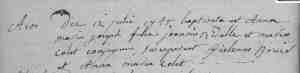 Die 12 julii 1745 baptisata est Anna
maria joseph filia joannis Dalle et maria
colet conjugum susceperunt
et Anna maria colet